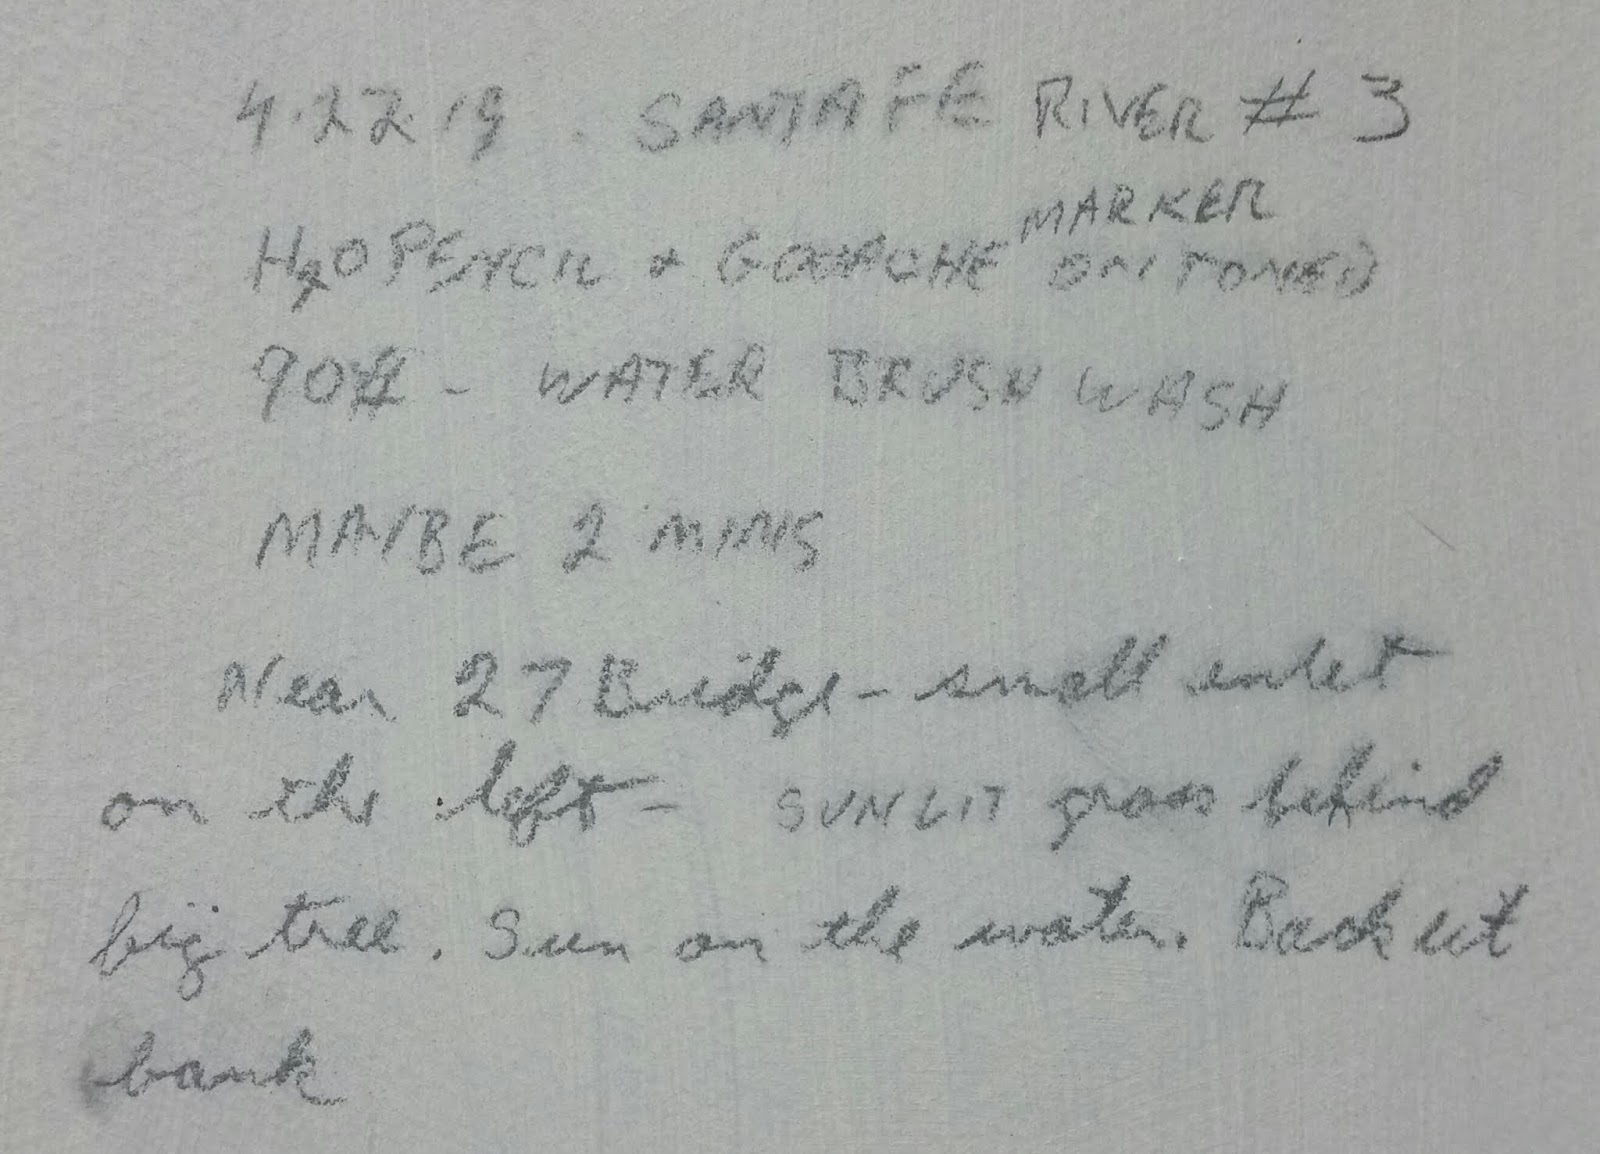 4.22.19. SANTA FE RIVER # 3
MARKER
H2O PENCIL & GOUACHE ON TONED
90# - WATER BRUSH WASH
MAYBE 2 MINS
Near 27 Bridge - small inlet
on the left - SUNLIT grass behind
big tree. Sun on the water. Back lit
bank